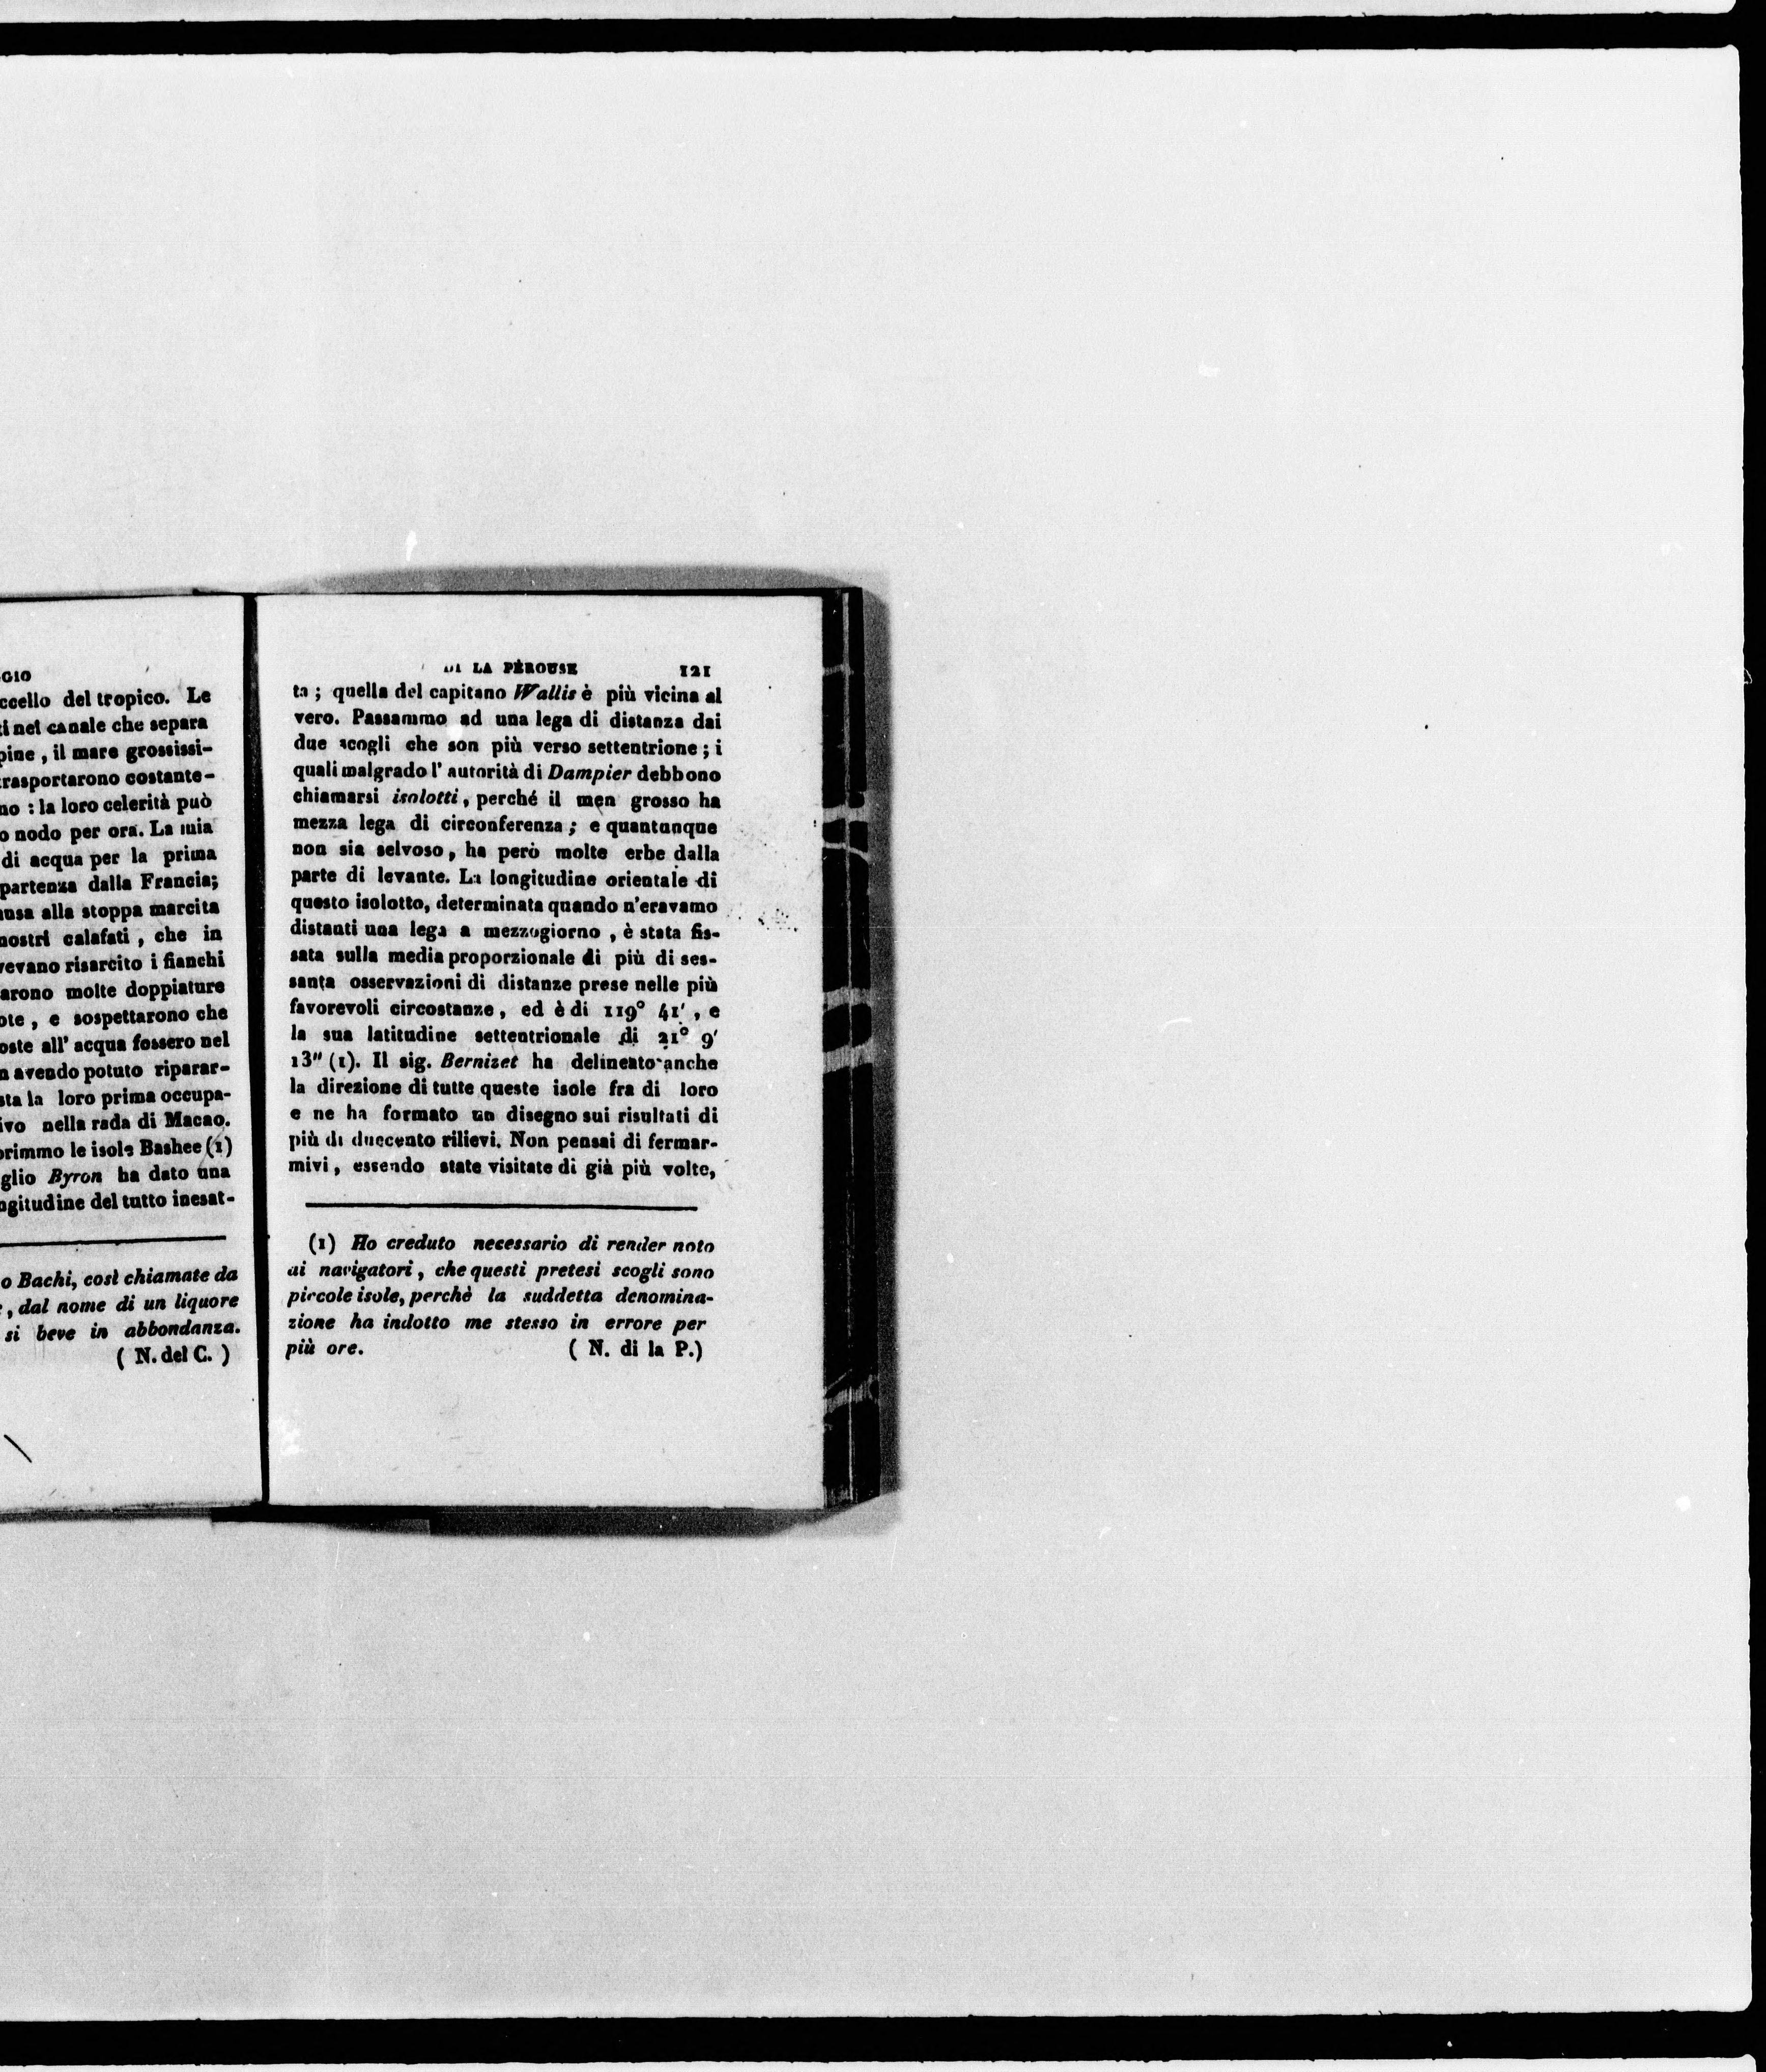 GIO
ccello del tropico. Le
ti nel canale che separa
pine, il mare grossissi-
trasportarono costante-
no : la loro celerità può
o nodo per ora. La mia
di acqua per la prima
partenza dalla Francia;
usa alla stoppa marcita
nostri calafati, che in
vevano risarcito i fianchi
arono molte doppiature
ote, e sospettarono che
oste all' acqua fossero nel
n avendo potuto riparar-
sta la loro prima occupa-
ivo nella rada di Macao.
primmo le isole Bashee (1)
glio Byron ha dato una
ngitudine del tutto inesat-
o Bachi, così chiamate da
, dal nome di un liquore
si beve in abbondanza.
( N. del C. )
DI LA PÉROUSE 121
ta ; quella del capitano Wallis è più vicina al
vero. Passammo ad una lega di distanza dai
due scogli che son più verso settentrione ; i
quali malgrado l' autorità di Dampier debbono
chiamarsi isolotti, perché il men grosso ha
mezza lega di circonferenza ; e quantunque
non sia selvoso, ha però molte erbe dalla
parte di levante. La longitudine orientale di
questo isolotto, determinata quando n'eravamo
distanti una lega a mezzogiorno, è stata fis-
sata sulla media proporzionale di più di ses-
santa osservazioni di distanze prese nelle più
favorevoli circostanze, ed è di 119° 41', e
la sua latitudine settentrionale di 21° 9'
13" (1). Il sig. Bernizet ha delineato anche
la direzione di tutte queste isole fra di loro
e ne ha formato un disegno sui risultati di
più di duecento rilievi. Non pensai di fermar-
mivi, essendo state visitate di già più volte,
(1) Ho creduto necessario di render noto
ai navigatori, che questi pretesi scogli sono
piccole isole, perchè la suddetta denomina-
zione ha indotto me stesso in errore per
più ore. ( N. di la P.)